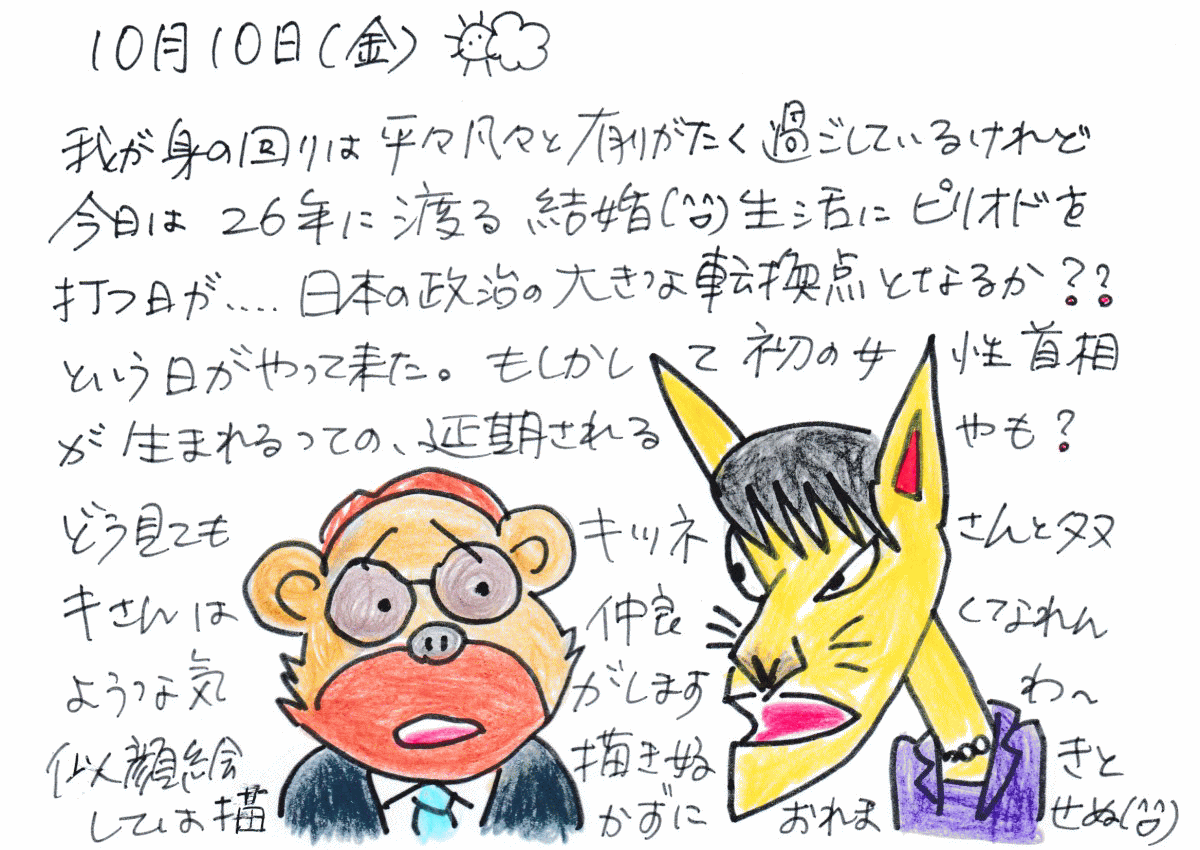 10月10日(金)
我が身の回りは平々凡々と有りがたく過ごしているけれど
今日は26年に渡る結婚(^^)生活にピリオドを
打つ日が....日本の政治の大きな転換点となるか??
という日がやって来た。もしかして初の女性首相
が生まれるっての、延期されるやも?
どう見てもキツネさんとタヌ
キさんは仲良くなれん
ような気がしますわ〜
似顔絵描きぬきと
しては描かずにおれませぬ(^^)